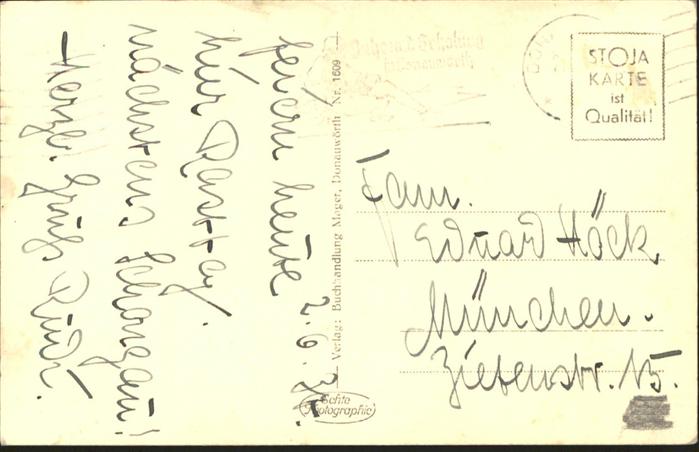 2.6.37.
feiern heute
hier Rasttag.
nächstens Schongau!
Herzl. Grüße Rudi.
Verlag: Buchhandlung Mager, Donauwörth Nr. 1609
Echte
Photographie
Erholung
in Donauwörth
STOJA
KARTE
ist
Qualität!
Fam.
Eduard Höck,
München.
Zietenstr. 15.